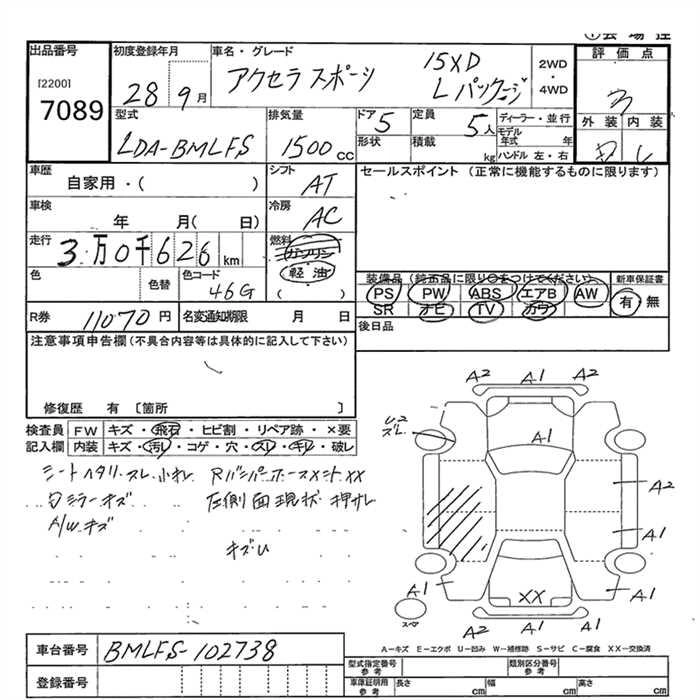 出品番号
[2200]
7089
初度登録年月
28 9月
車名・グレード
アクセラ スポーツ
15XD
L パッケージ
2WD
・
4WD
評価点
3
外装 内装
型式
LDA-BMLFS
排気量
1500 cc
ドア 5
形状
定員
5人
積載
kg
ディーラー・並行
モデル年式 年
ハンドル 左・右
車歴
自家用・( )
シフト
AT
セールスポイント (正常に機能するものに限ります)
車検
年 月( 日)
冷房
AC
走行
3万0千626km
燃料
ガソリン
軽油
( )
色
色替
色コード
46G
装備品 (純正品に限り○をつけてください)
PS PW ABS エアB AW
SR ナビ TV カワ
新車保証書
有・無
R券
11070円
名変通知期限 月 日
後日品
注意事項申告欄(不具合内容等は具体的に記入して下さい)
修復歴 有 〔箇所 〕
検査員
記入欄
FW キズ・飛石・ヒビ割・リペア跡・×要
内装 キズ・汚レ・コゲ・穴・スレ・キレ・破レ
シートヘタリ
ミラーキズ
A/Wキズ
左側面現状
A2 A1 A2
A1
A2
A1
A1
A1
XX
A2 A1 A1
スペア
A-キズ E-エクボ U-凹み W-補修跡 S-サビ C-腐食 XX-交換済
車台番号
BMLFS-102738
登録番号
型式指定番号
参考
類別区分番号
参考
車庫証明用
参考
長さ cm 幅 cm 高さ cm